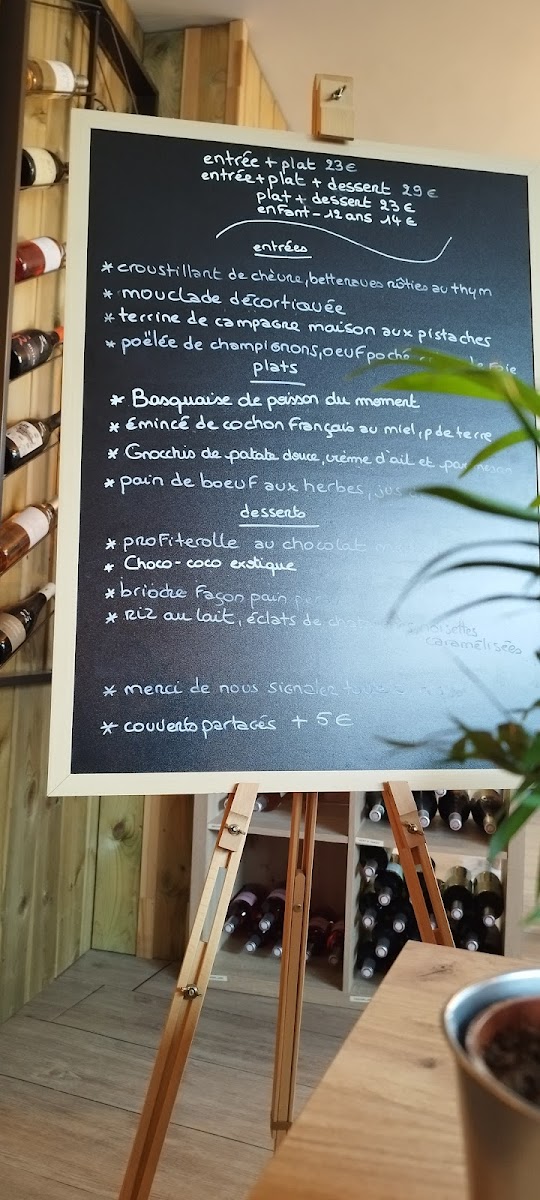 entrée + plat 23€
entrée+plat + dessert 29€
plat + dessert 23€
enfant - 12 ans 14€
entrées
* croustillant de chèvre, betteraves rôties au thym
* mouclade décortiquée
* terrine de campagne maison aux pistaches
* poêlée de champignons, oeuf poché
plats
* Basquaise de poisson du moment
* émincé de cochon français au miel, p de terre
* Gnocchis de patate douce, crème d'ail et parmesan
* pain de boeuf aux herbes, jus
desserts
* profiterolle au chocolat
* Choco-coco exotique
* brioche façon pain
* Riz au lait, éclats de noisettes
caramélisées
* merci de nous signaler
* couverts partagés + 5€